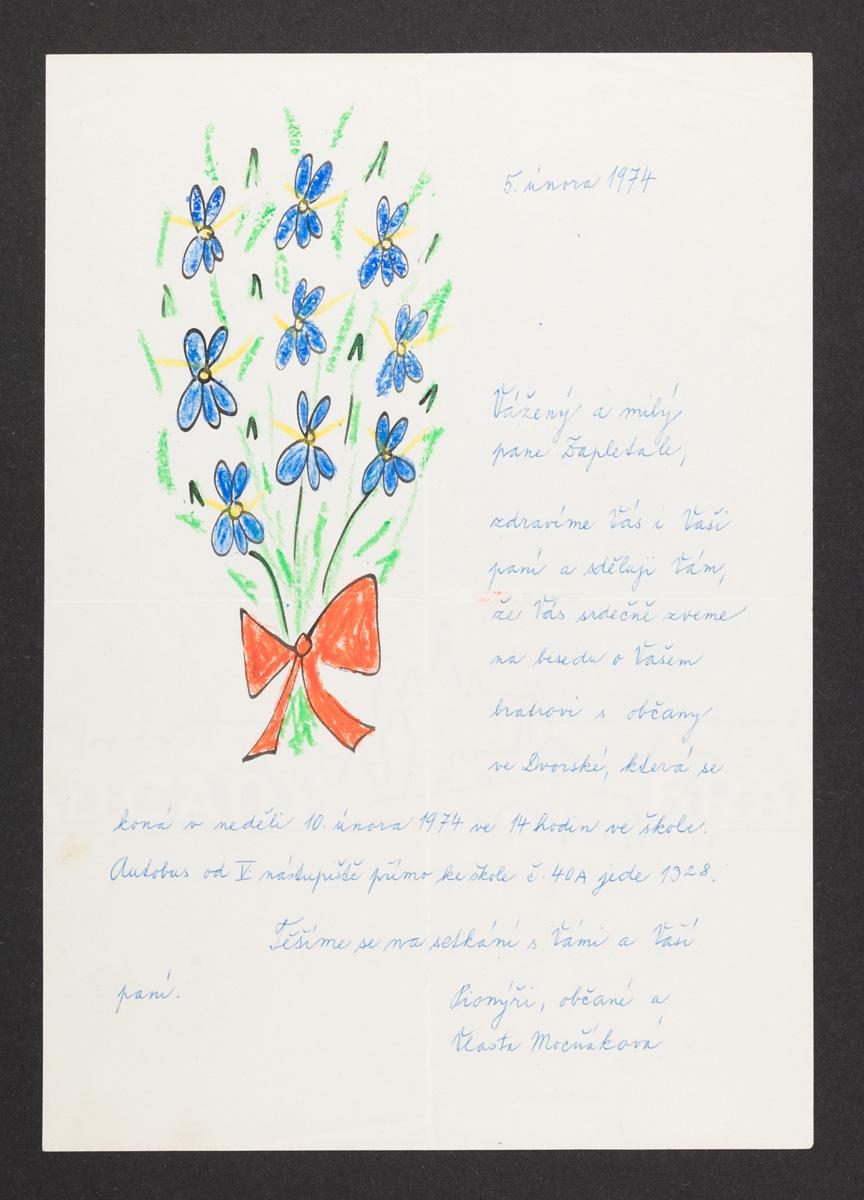 5. února 1974
Vážený a milý
pane Zapletale,
zdravíme Vás i Vaši
paní a sděluji Vám,
že Vás srdečně zveme
na besedu o Vašem
bratrovi s občany
ve Dvorské, která se
koná v neděli 10. února 1974 ve 14 hodin ve škole.
Autobus od V. nástupiště přímo ke škole č. 40A jede 1328.
Těšíme se na setkání s Vámi a Vaší
paní.
Pionýři, občané a
Vlasta Mocňáková